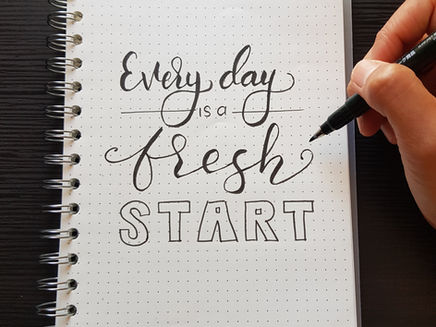 Every day
is a
fresh
START